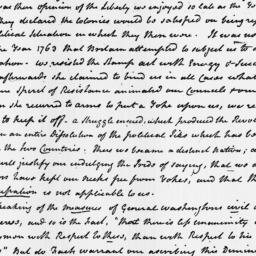 was then opinion of the Liberty we enjoyed so late as the Ye
they declared the colonies would be satisfied on being rep
political situation in which they then were. It was no
the Year 1763 that Britain attempted to subject us to a
ation. we resisted the Stamp act with Energy & Succ
afterwards she claimed to bind us in all Cases whats
same Spirit of Resistance animated our Councils from
en she recurred to arms to put a Yoke upon us, we re
to keep it off. a struggle ensued, which produced the Revol
in an entire Dissolution of the political Ties which has bo
n the two Countries. Thus we became a distinct nation; a
will justify our indulging the Pride of saying, that we a
ors have kept our Necks free from Yokes, and that th
ipation is not applicable to us.
peaking of the measures of General Washingtons civil a
eres, and so is the Fact, "that there is less unanimity
mmon with Respect to these, than with Respect to his
s." But do Facts warrant our ascribing this Diminu